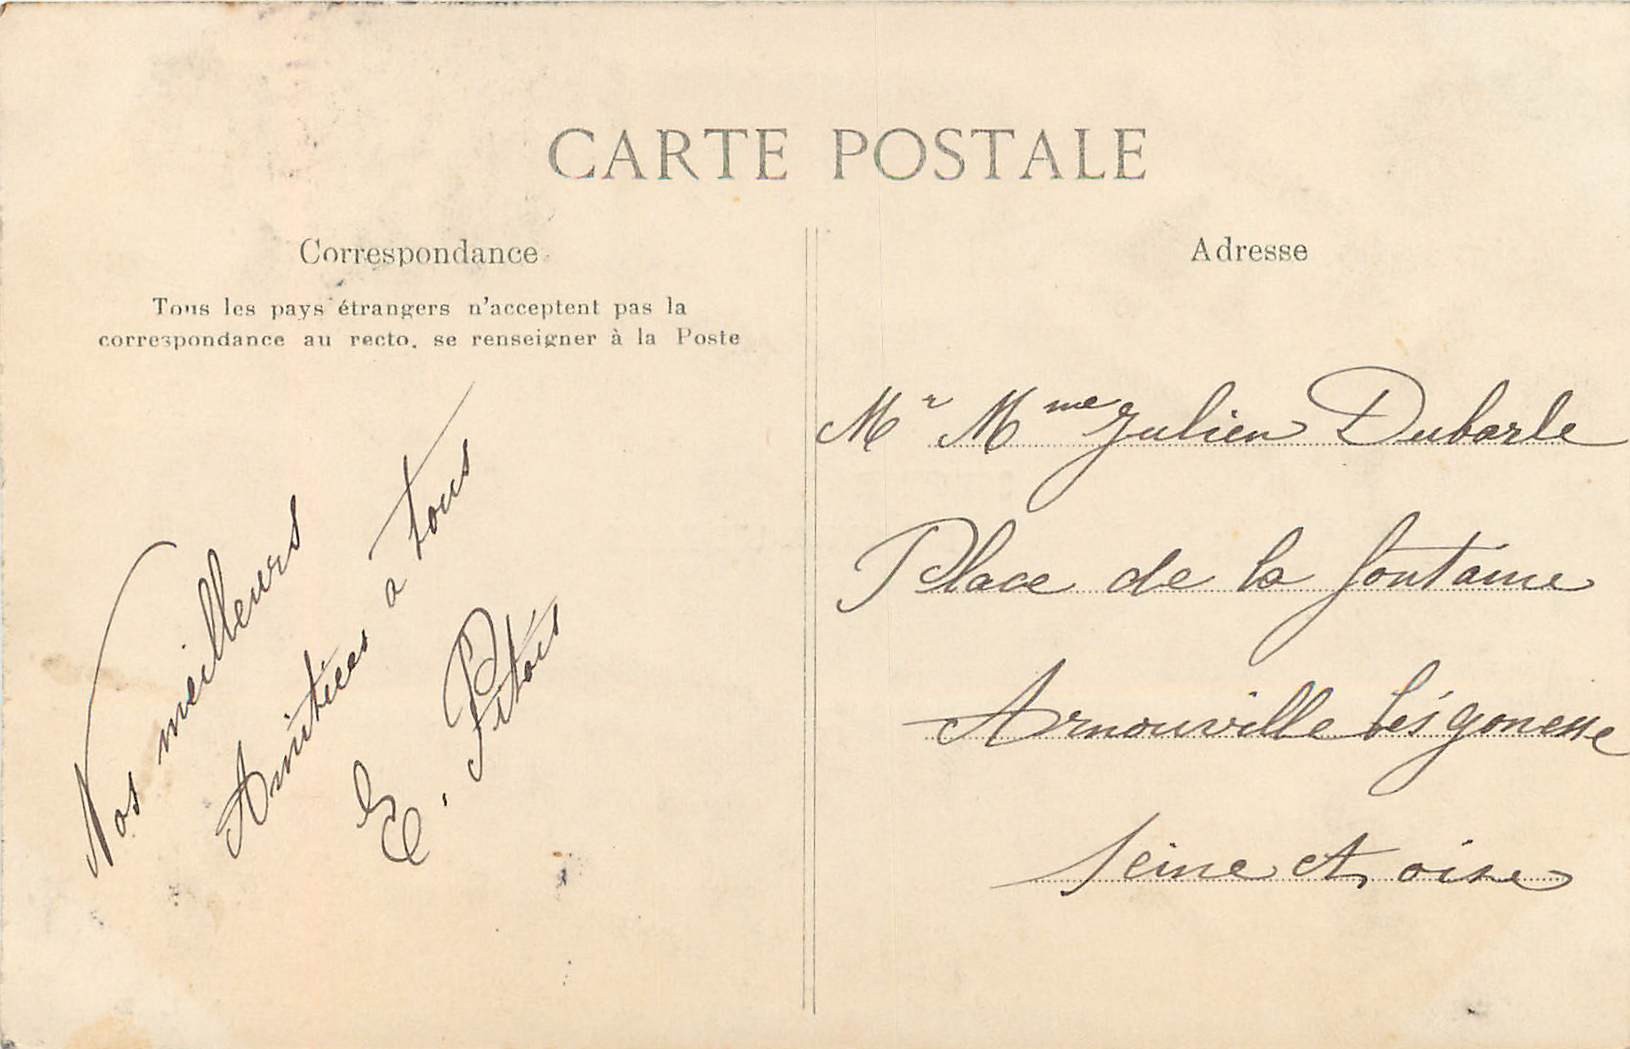 CARTE POSTALE
Correspondance
Tous les pays étrangers n'acceptent pas la
correspondance au recto, se renseigner à la Poste
Nos meilleurs
Amitiées a tous
E. Pitois
Adresse
Mr Mme Julien Dubarle
Place de la fontaine
Arnouville les gonesse
Seine et oise